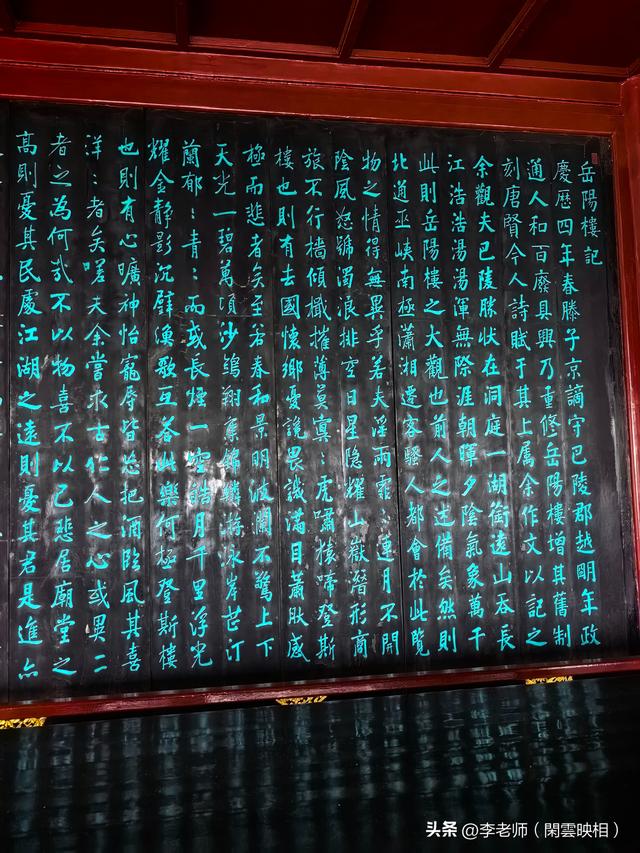 岳陽樓記
慶歷四年春滕子京謫守巴陵郡越眀年政
通人和百廢具興乃重修岳陽樓增其舊制
刻唐賢今人詩賦于其上属余作文以記之
余觀夫巴陵勝狀在洞庭一湖銜遠山吞長
江浩浩湯湯渾無際涯朝暉夕陰氣象萬千
此則岳陽樓之大觀也前人之述備矣然則
北通巫峽南極瀟湘遷客騷人都會於此覽
物之情得無異乎若夫淫雨霏：連月不開
陰風怒號濁浪排空日星隐耀山嶽潛形商
旅不行檣傾檝摧薄莫冥：虎嘯猿啼登斯
樓也則有去國懷鄉憂讒畏譏滿目蕭肰感
極而悲者矣至若春和景明波瀾不驚上下
天光一碧萬頃沙鷗翔集錦鱗游泳岸芷汀
蘭郁：青：而或長煙一空皓月千里浮光
耀金靜影沉璧漁歌互答此樂何極登斯樓
也則有心曠神怡寵辱皆忘把酒臨風其喜
洋：者矣嗟夫余嘗求古仁人之心或異二
者之為何哉不以物喜不以己悲居廟堂之
高則憂其民處江湖之遠則憂其君是進亦
头条 @李老师（閑雲映相）